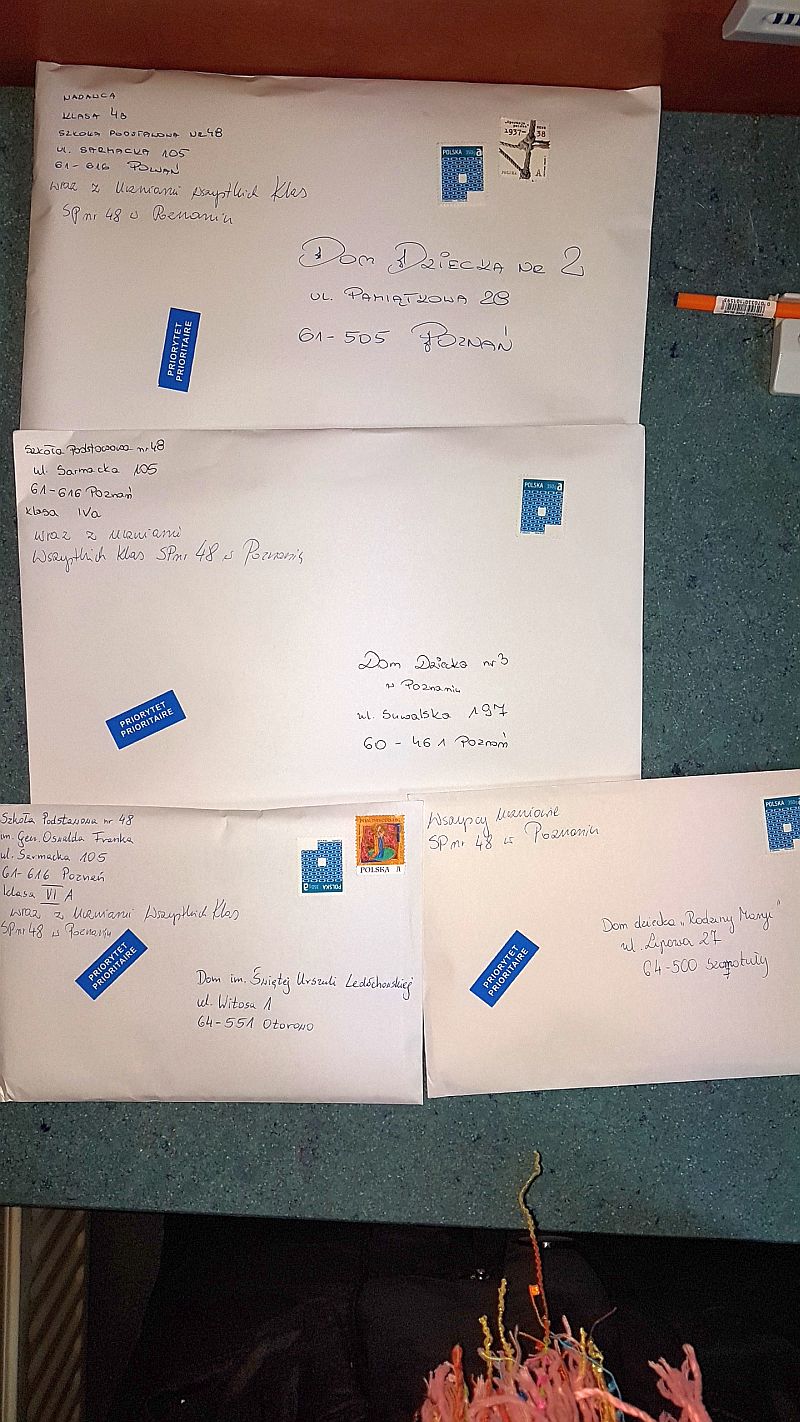 NADAWCA
KLASA 4B
SZKOŁA PODSTAWOWA NR 48
UL. SARMACKA 105
61-616 POZNAŃ
wraz z Uczniami wszystkich Klas
SP nr 48 w Poznaniu
POLSKA 350g a
1937-38
POLSKA A
DOM DZIECKA NR 2
UL. PAMIĄTKOWA 28
61-505 POZNAŃ
PRIORYTET
PRIORITAIRE
Szkoła Podstawowa nr 48
ul. Sarmacka 105
61-616 Poznań
klasa IVa
wraz z Uczniami
Wszystkich Klas SP nr 48 w Poznaniu
POLSKA 350g a
Dom Dziecka nr 3
w Poznaniu
ul. Suwalska 197
60-461 Poznań
PRIORYTET
PRIORITAIRE
Szkoła Podstawowa nr 48
im. Gen. Oswalda Franka
ul. Sarmacka 105
61-616 Poznań
klasa VI A
wraz z Uczniami Wszystkich Klas
SP nr 48 w Poznaniu
POLSKA 350g a
POLSKA A
PRIORYTET
PRIORITAIRE
Dom im. Świętej Urszuli Ledóchowskiej
ul. Witosa 1
64-551 Otorowo
Wszyscy Uczniowie
SP nr 48 w Poznaniu
POLSKA
PRIORYTET
PRIORITAIRE
Dom dziecka „Rodziny Maryi"
ul. Lipowa 27
64-500 Szamotuły